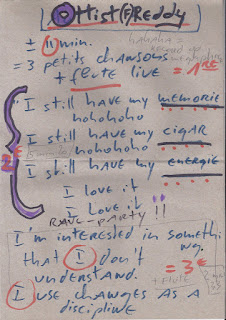 OttistFREddy
± 11 min.
= 3 petits chansons
+ flute live = 1RE
I still HAVE my MEMORIE
hohohoho
I still HAVE my CIGAR
hohohoho
I still HAVE my ENERGIE
I love it
I love it
RAVE-PARTY !!
I'm interested in somethi
ng.
that I don't
understand.
= 3e
+ flute
I use changes as a
discipline